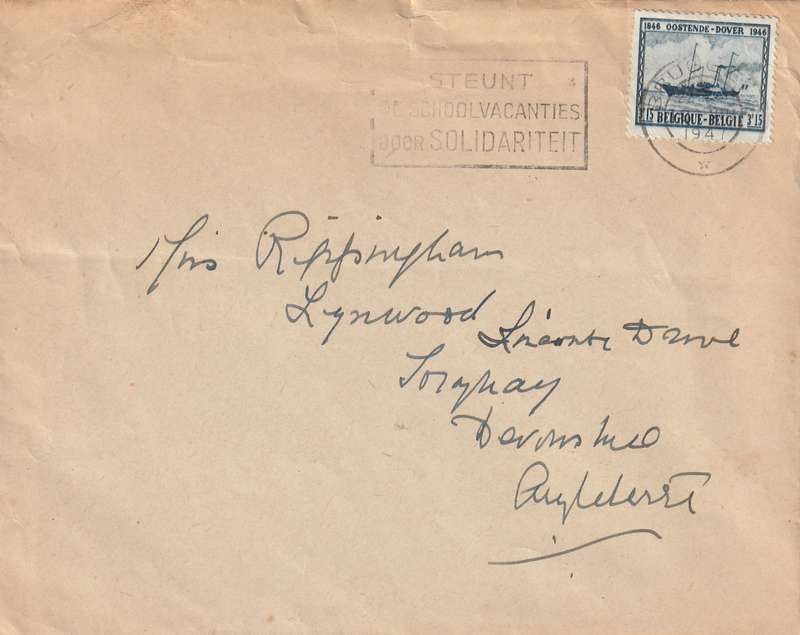 1846 OOSTENDE-DOVER 1946
BELGIQUE-BELGIE 3F15
1947
STEUNT
DE SCHOOLVACANTIES
DOOR SOLIDARITEIT
Miss Rippingham
Lynwood
Lincombe Drive
Torquay
Devonshire
Angleterre